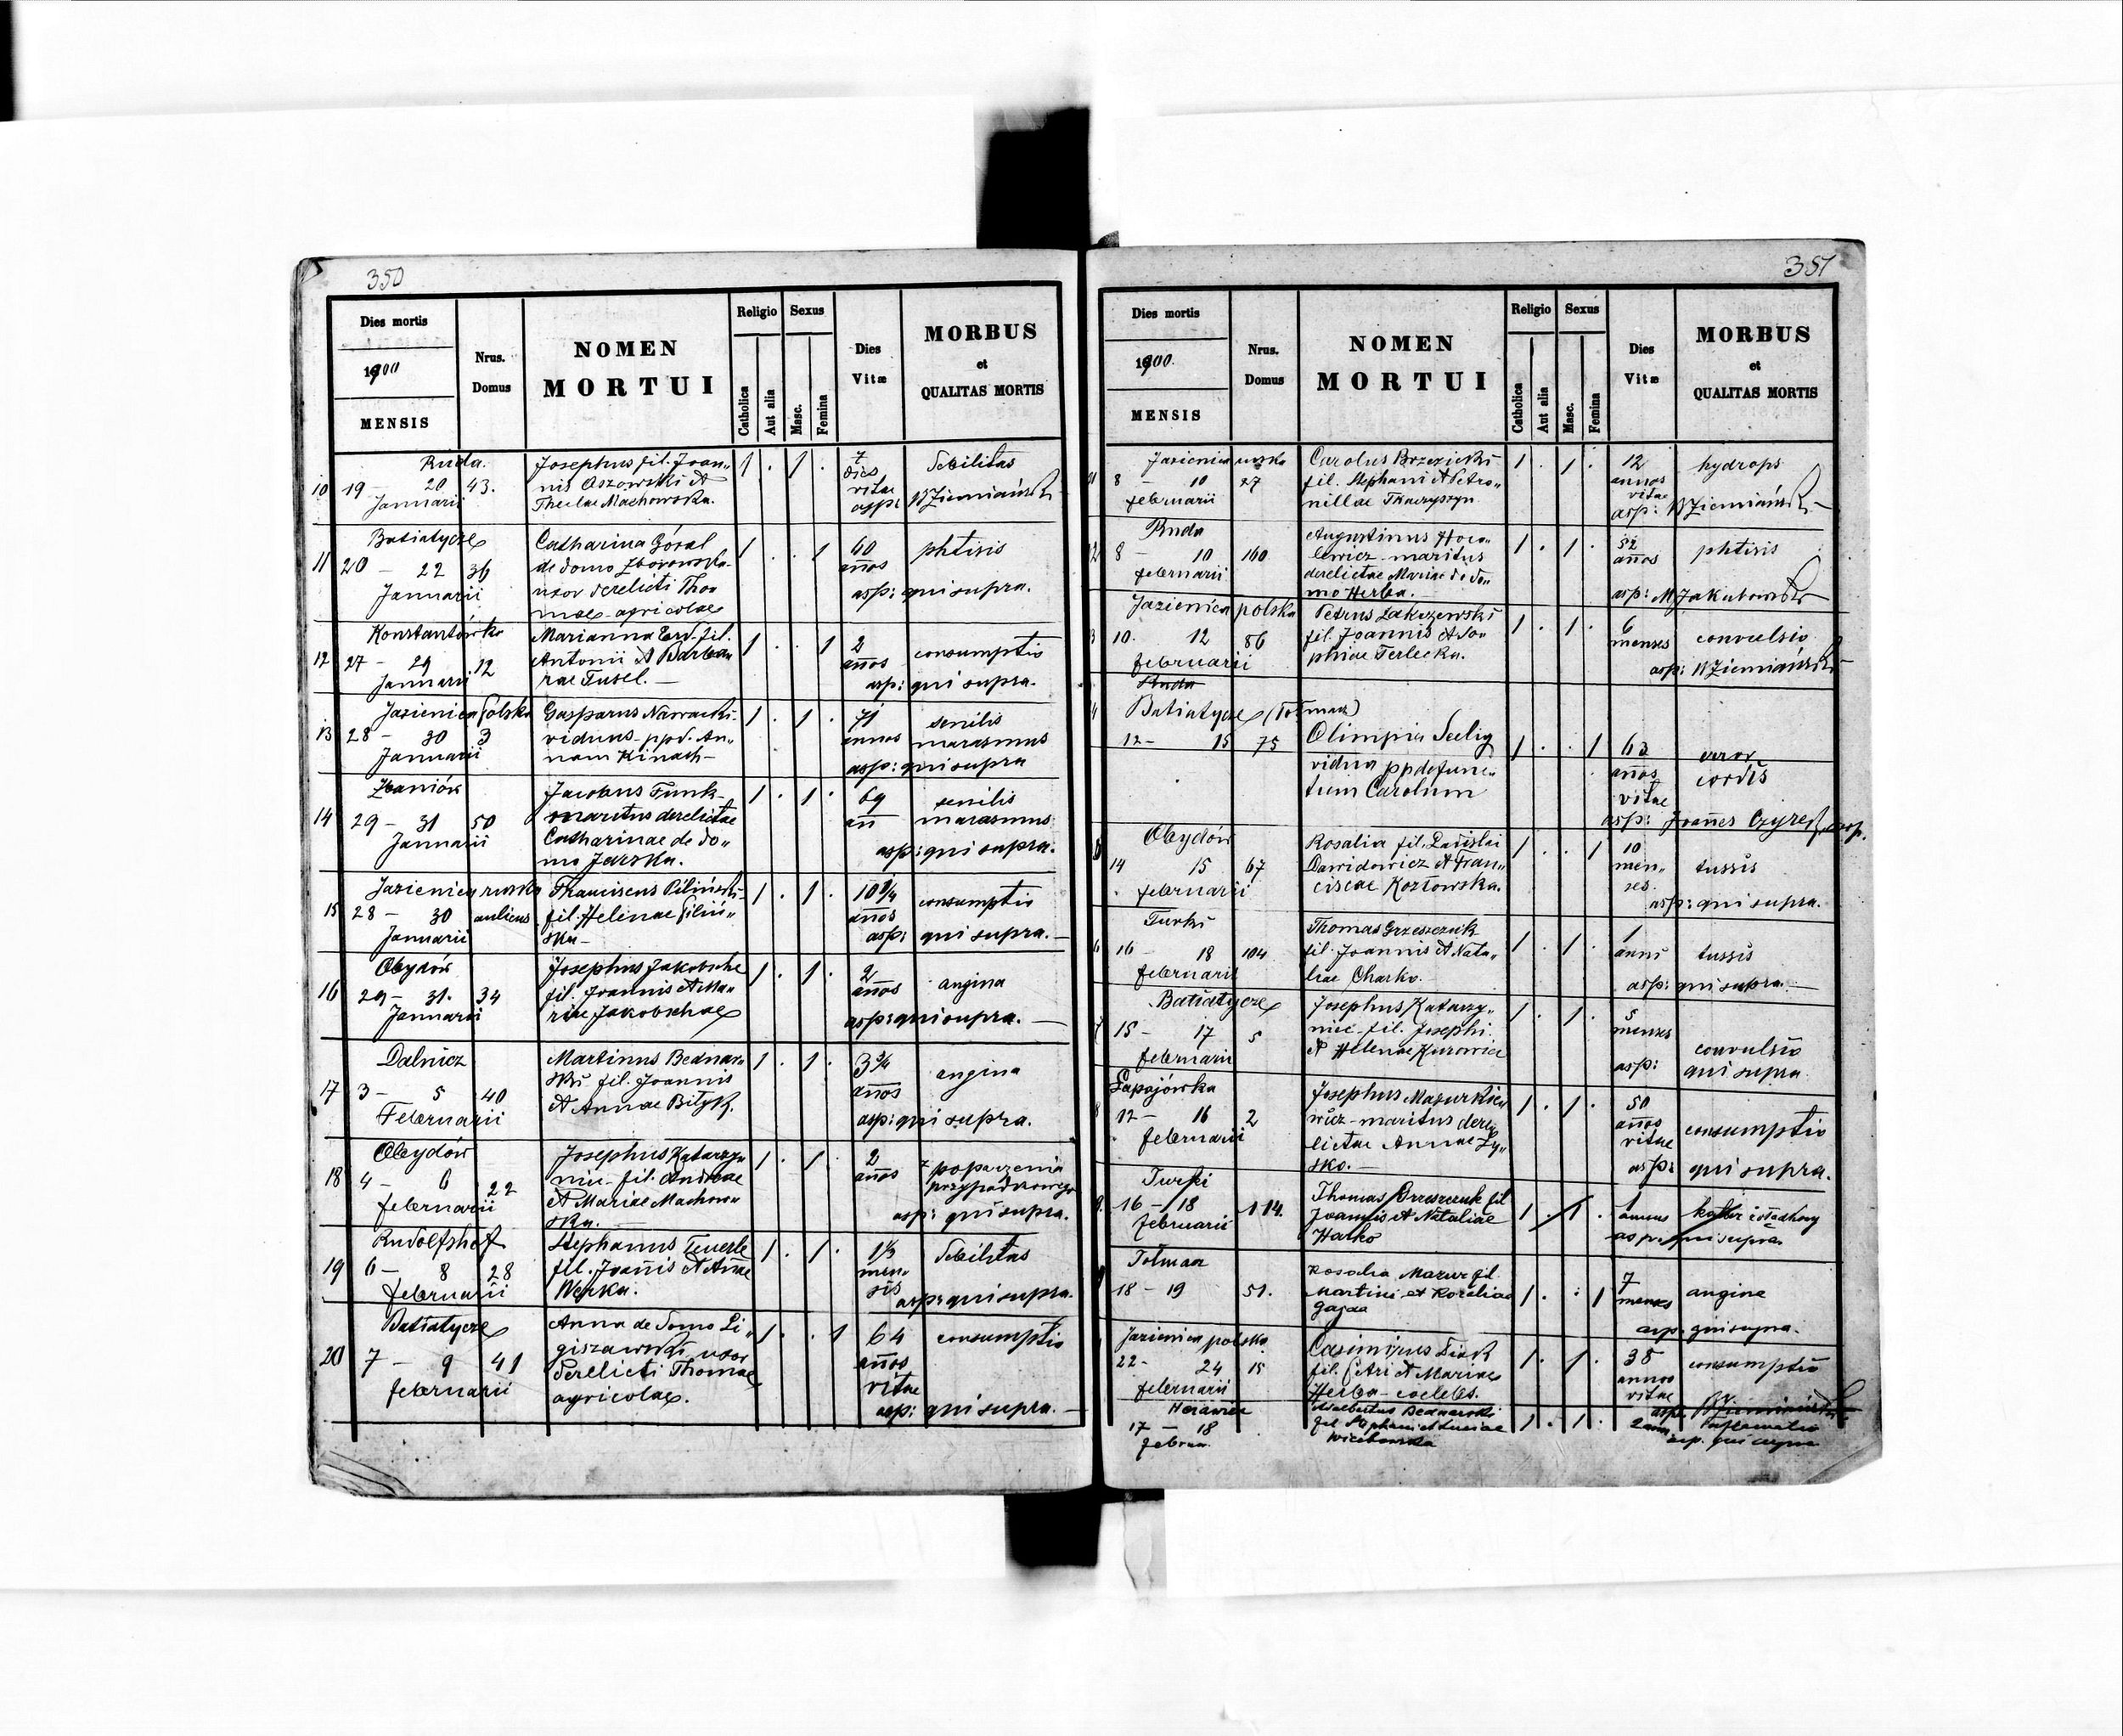 350
Dies mortis
1900
MENSIS
Nrus. Domus
NOMEN
MORTUI
Religio
Catholica
Aut alia
Sexus
Masc.
Femina
Dies
Vitæ
MORBUS
et
QUALITAS MORTIS
Ruda.
10 19 - 20 43.
Januarii
Josephus fil. Joan„
nis Oszowski et
Theclae Machowska.
1 . 1 .
7
dies
vitae
asp:
debilitas
W Ziemiański
Batiatycze
11 20 - 22 36
Januarii
Catharina Góral
de domo Zborowska
uxor derelicti Tho„
mae agricolae
1 . . 1
60
años
phtisis
asp: qui supra.
Konstantówka
12 27 - 29 12
Januarii
Marianna fil.
Antonii et Barba„
rae Fusel.
1 . . 1
2
años
consumptio
asp: qui supra.
Jazienica Polska
13 28 - 30 3
Januarii
Gasparus Nawracki
viduus ppd. An„
nam Kinach
1 . 1 .
71
annos
senilis
marasmus
asp: qui supra
Zbaniów
14 29 - 31 50
Januarii
Jacobus Funk
maritus derelictae
Catharinae de do„
mo Jarska.
1 . 1 .
69
añ
senilis
marasmus
asp: qui supra.
Jazienica ruska
15 28 - 30
Januarii
Franciscus Piliński
fil. Helenae Piliń„
ska
1 . 1 .
10 1/4
años
consumptio
asp: qui supra.
Obydów
16 29 - 31. 34
Januarii
Josephus Jakobsche
fil. Joannis et Ma„
riae Jakobschae
1 . 1 .
2
años
angina
asp: qui supra.
Dalnicz
17 3 - 5 40
Februarii
Martinus Bednar„
ski fil. Joannis
et Annae Bityk.
1 . 1 .
3 3/4
años
angina
asp: qui supra.
Obydów
18 4 - 6 22
februarii
Josephus Katarzy„
nic fil. Andreae
et Mariae Machow„
ska.
1 . 1 .
2
años
z poparzenia
przypadkowego
asp: qui supra.
Rudolfshof
19 6 - 8 28
februarii
Stephanus Feuerle
fil. Joañis et Añae
Werka.
1 . 1 .
1 1/3
men„
sis
debilitas
asp: qui supra.
Batiatycze
20 7 - 9 41
februarii
Anna de domo Li„
giszawski uxor
derelicti Thomae
agricolae.
1 . . 1
64
años
vitae
consumptio
asp: qui supra.
351
Dies mortis
1900.
MENSIS
Nrus. Domus
NOMEN
MORTUI
Religio
Catholica
Aut alia
Sexus
Masc.
Femina
Dies
Vitæ
MORBUS
et
QUALITAS MORTIS
Jazienica ruska
8 - 10 27
februarii
Carolus Brzezicki
fil. Stephani et Petro„
nillae Tkaczyszyn
1 . 1 .
12
annos
vitae
hydrops
asp: W Ziemiański
Ruda
8 - 10 160
februarii
Augustinus Hoco„
lewicz maritus
derelictae Mariae de do„
mo Herba.
1 . 1 .
52
años
phtisis
asp: M Jakubowski
Jazienica polska
10. 12 86
februarii
Petrus Zakrzewski
fil. Joannis et So„
phiae Terlecka.
1 . 1 .
6
menses
convulsio
asp: W Ziemiański
Ruda
Batiatycze (Tołmacz)
12 - 15 75
Olimpia Seelig
vidua pp defunc„
tum Carolum
1 . . 1
62
años
vitae
cordis
asp: Joañes Czyrek
Obydów
14 15 67
februarii
Rosalia fil. Ladislai
Dawidowicz et Fran„
ciscae Kozłowska.
1 . . 1
10
men„
ses.
tussis
asp: qui supra.
Turki
16 18 104
februarii
Thomas Grzeszczuk
fil. Joannis et Nata„
liae Charko.
1 . 1 .
1
anni
tussis
asp: qui supra.
Batiatycze
15 - 17 5
februarii
Josephus Katarzy„
nic fil. Josephi
et Helenae Kurowice
1 . 1 .
5
menses
convulsio
asp: qui supra
Sapajówka
12 - 16 2
februarii
Josephus Mazurkie„
wicz maritus dere„
lictae Annae Ly„
sko.
1 . 1 .
50
años
vitae
consumptio
asp: qui supra.
Turki
16 - 18 114.
februarii
Thomas Grzeszczuk fil
Joannis et Nataliae
Halko
1 . 1 .
1
annus
asp. qui supra
Tołmacz
18 - 19 51.
Rosalia Mazur fil.
Martini et Rozaliae
Gajda
1 . . 1
7
menses
angine
asp. qui supra.
Jazienica polska
22 - 24 15
februarii
Casimirus Diak
fil. Petri et Mariae
Herba - coelebs.
1 . 1 .
38
annos
vitae
consumptio
asp. W Ziemiański
17 - 18
februa.
Adalbertus Bednarski
fil Stephani et Luciae
1 . 1 .
asp. qui supra